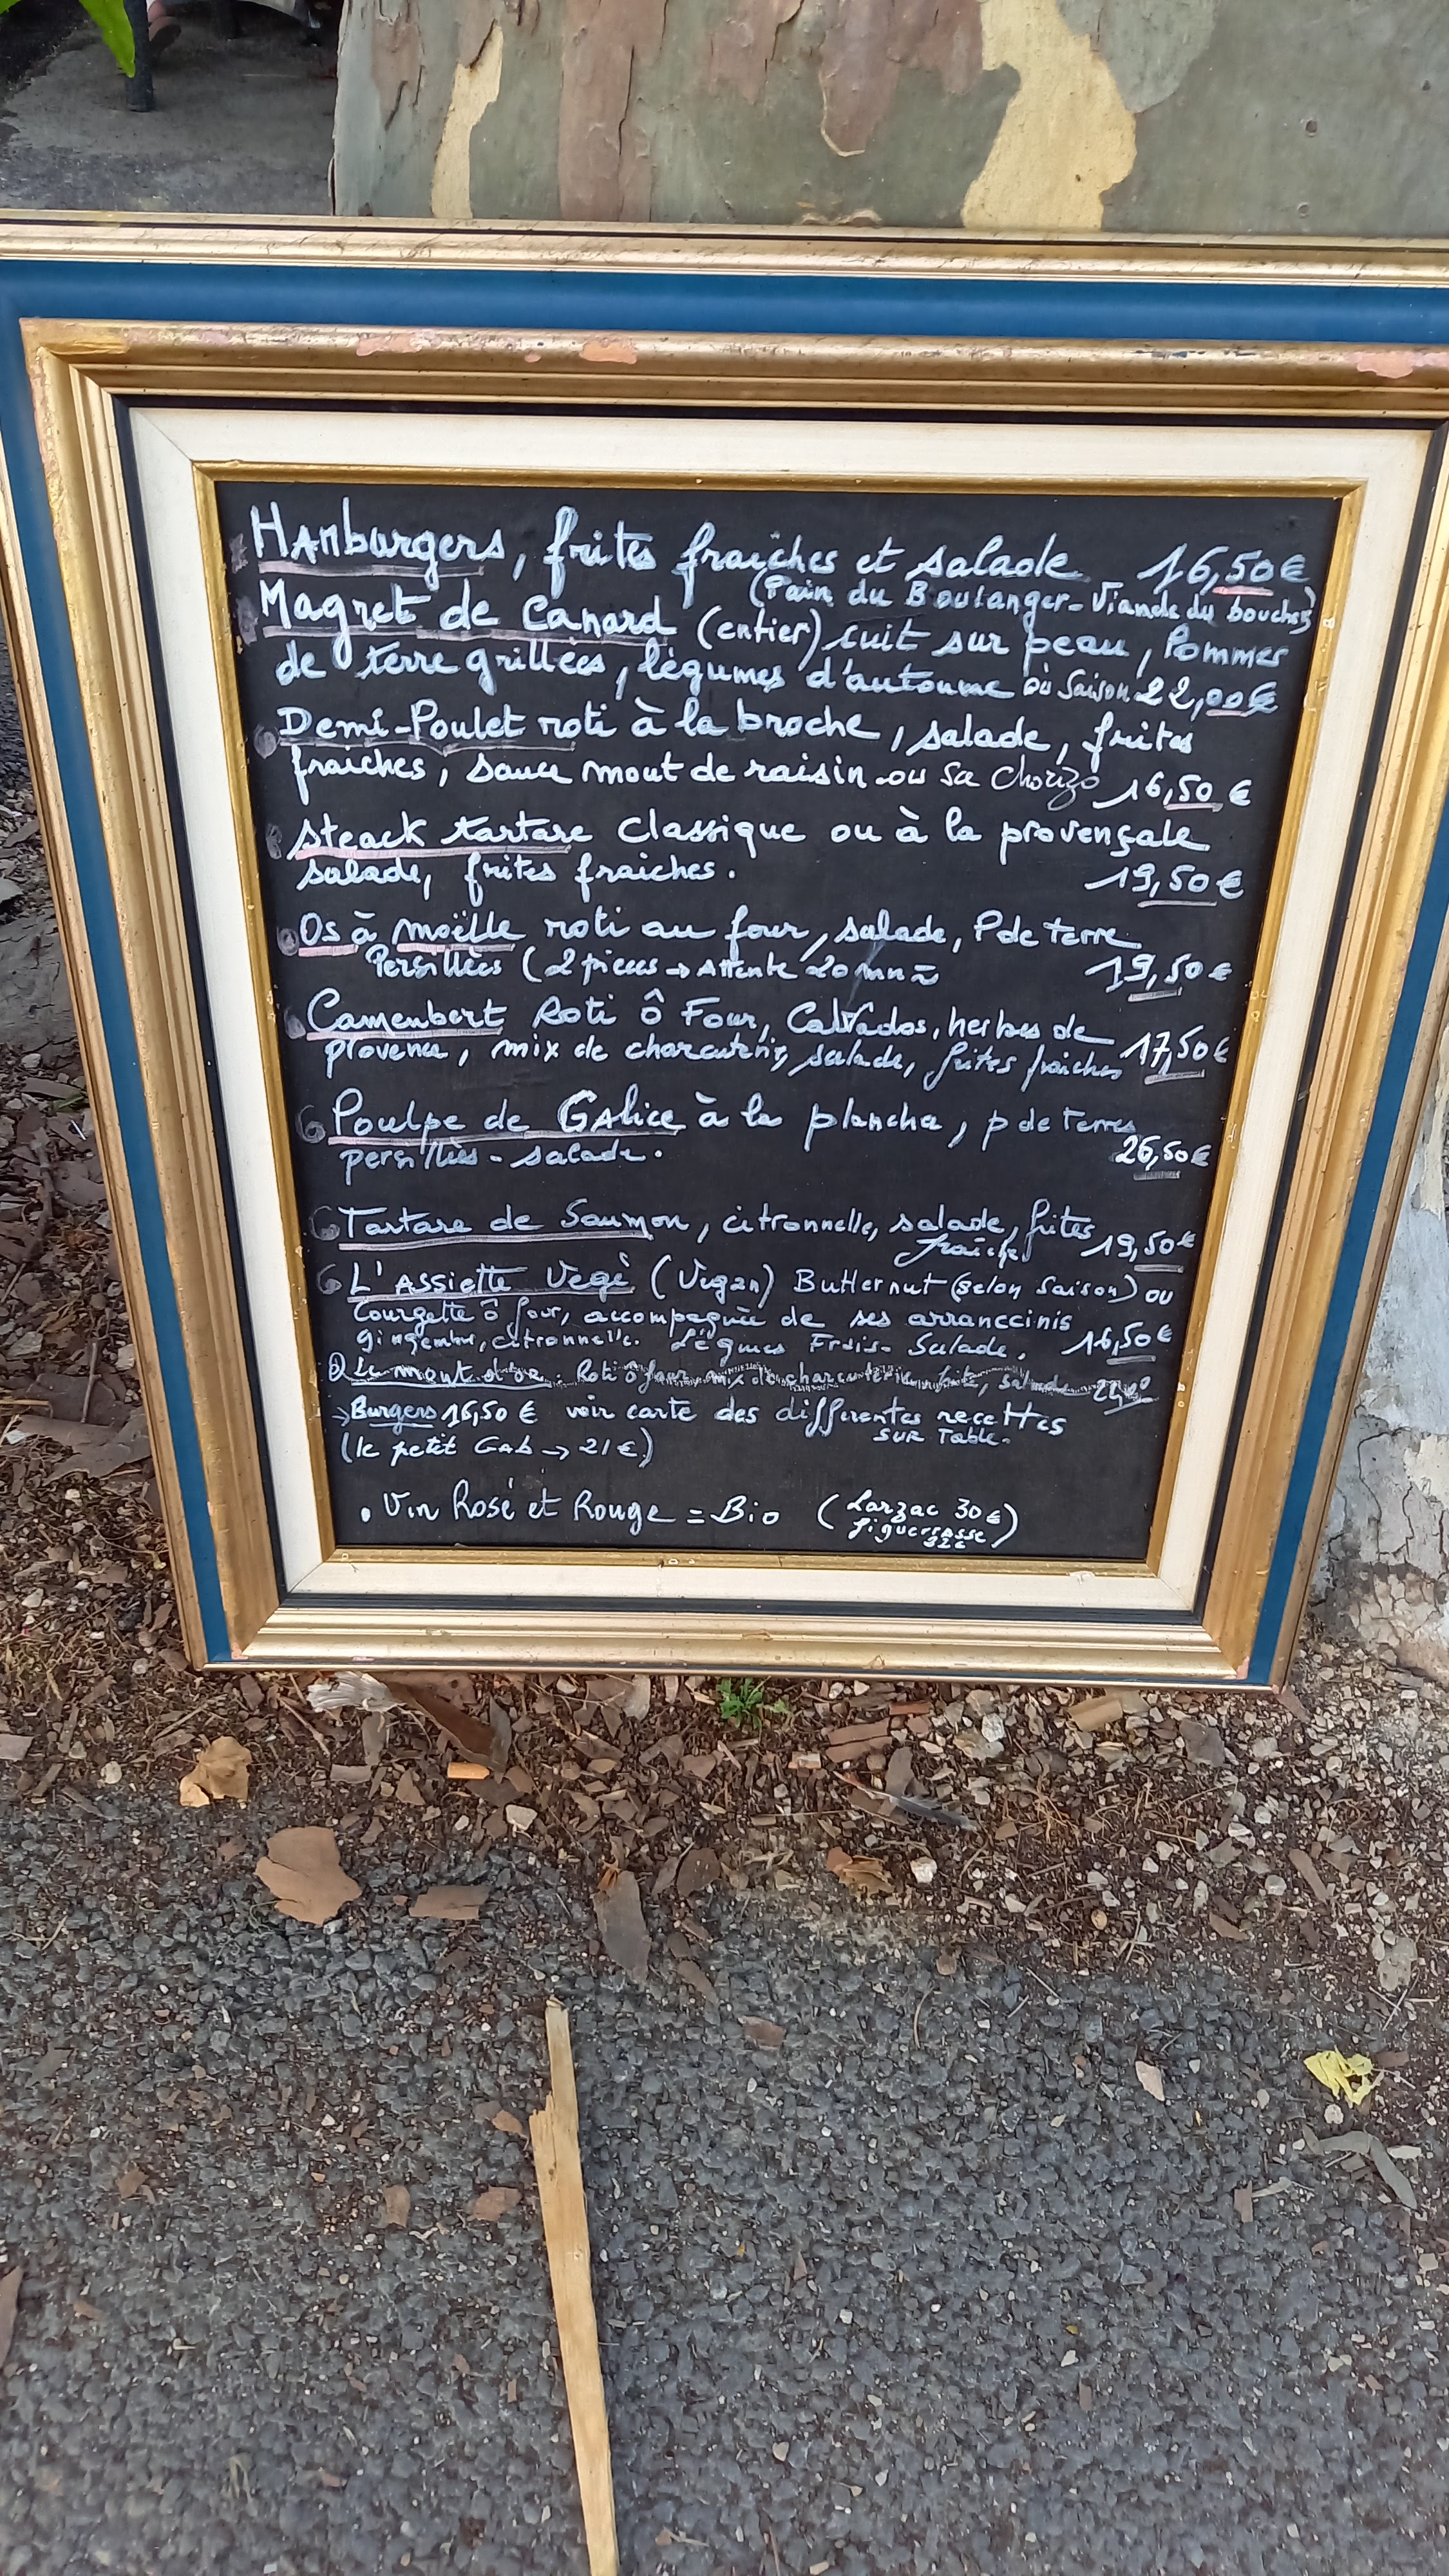 Hanburgers, frites fraîches et salade 16,50€
(Pain du Boulanger - Viande du boucher)
Magret de Canard (entier) cuit sur peau, Pommes
de terre grillées, légumes d'automne ou Saison 22,00€
Demi-Poulet roti à la broche, salade, frites
fraiches, sauce mout de raisin ou Sce Chorizo 16,50€
Steack tartare classique ou à la provençale
salade, frites fraiches. 19,50€
Os à moëlle roti au four, salade, P de terre
Persillées (2 pieces → Attente 20 mn 19,50€
Camenbert Roti ô Four, Calvados, herbes de
provence, mix de charcuterie, salade, frites fraiches 17,50€
Poulpe de Galice à la plancha, p de terres
persillées - salade. 26,50€
Tartare de Saumon, citronnelle, salade, frites
fraiches 19,50€
L'Assiette Végé (Vegan) Butternut (selon Saison) ou
Courgette ô four, accompagnée de ses arranccinis
gingembre, citronnelle. Légumes Frais - Salade. 16,50€
Le mont d'or. Roti ô four, mix de charcuterie, frite, salade
→ Burgers 16,50€ voir carte des differentes recettes
SUR Table.
(le petit Gab → 21€)
• Vin Rosé et Rouge = Bio (Larzac 30€
32€